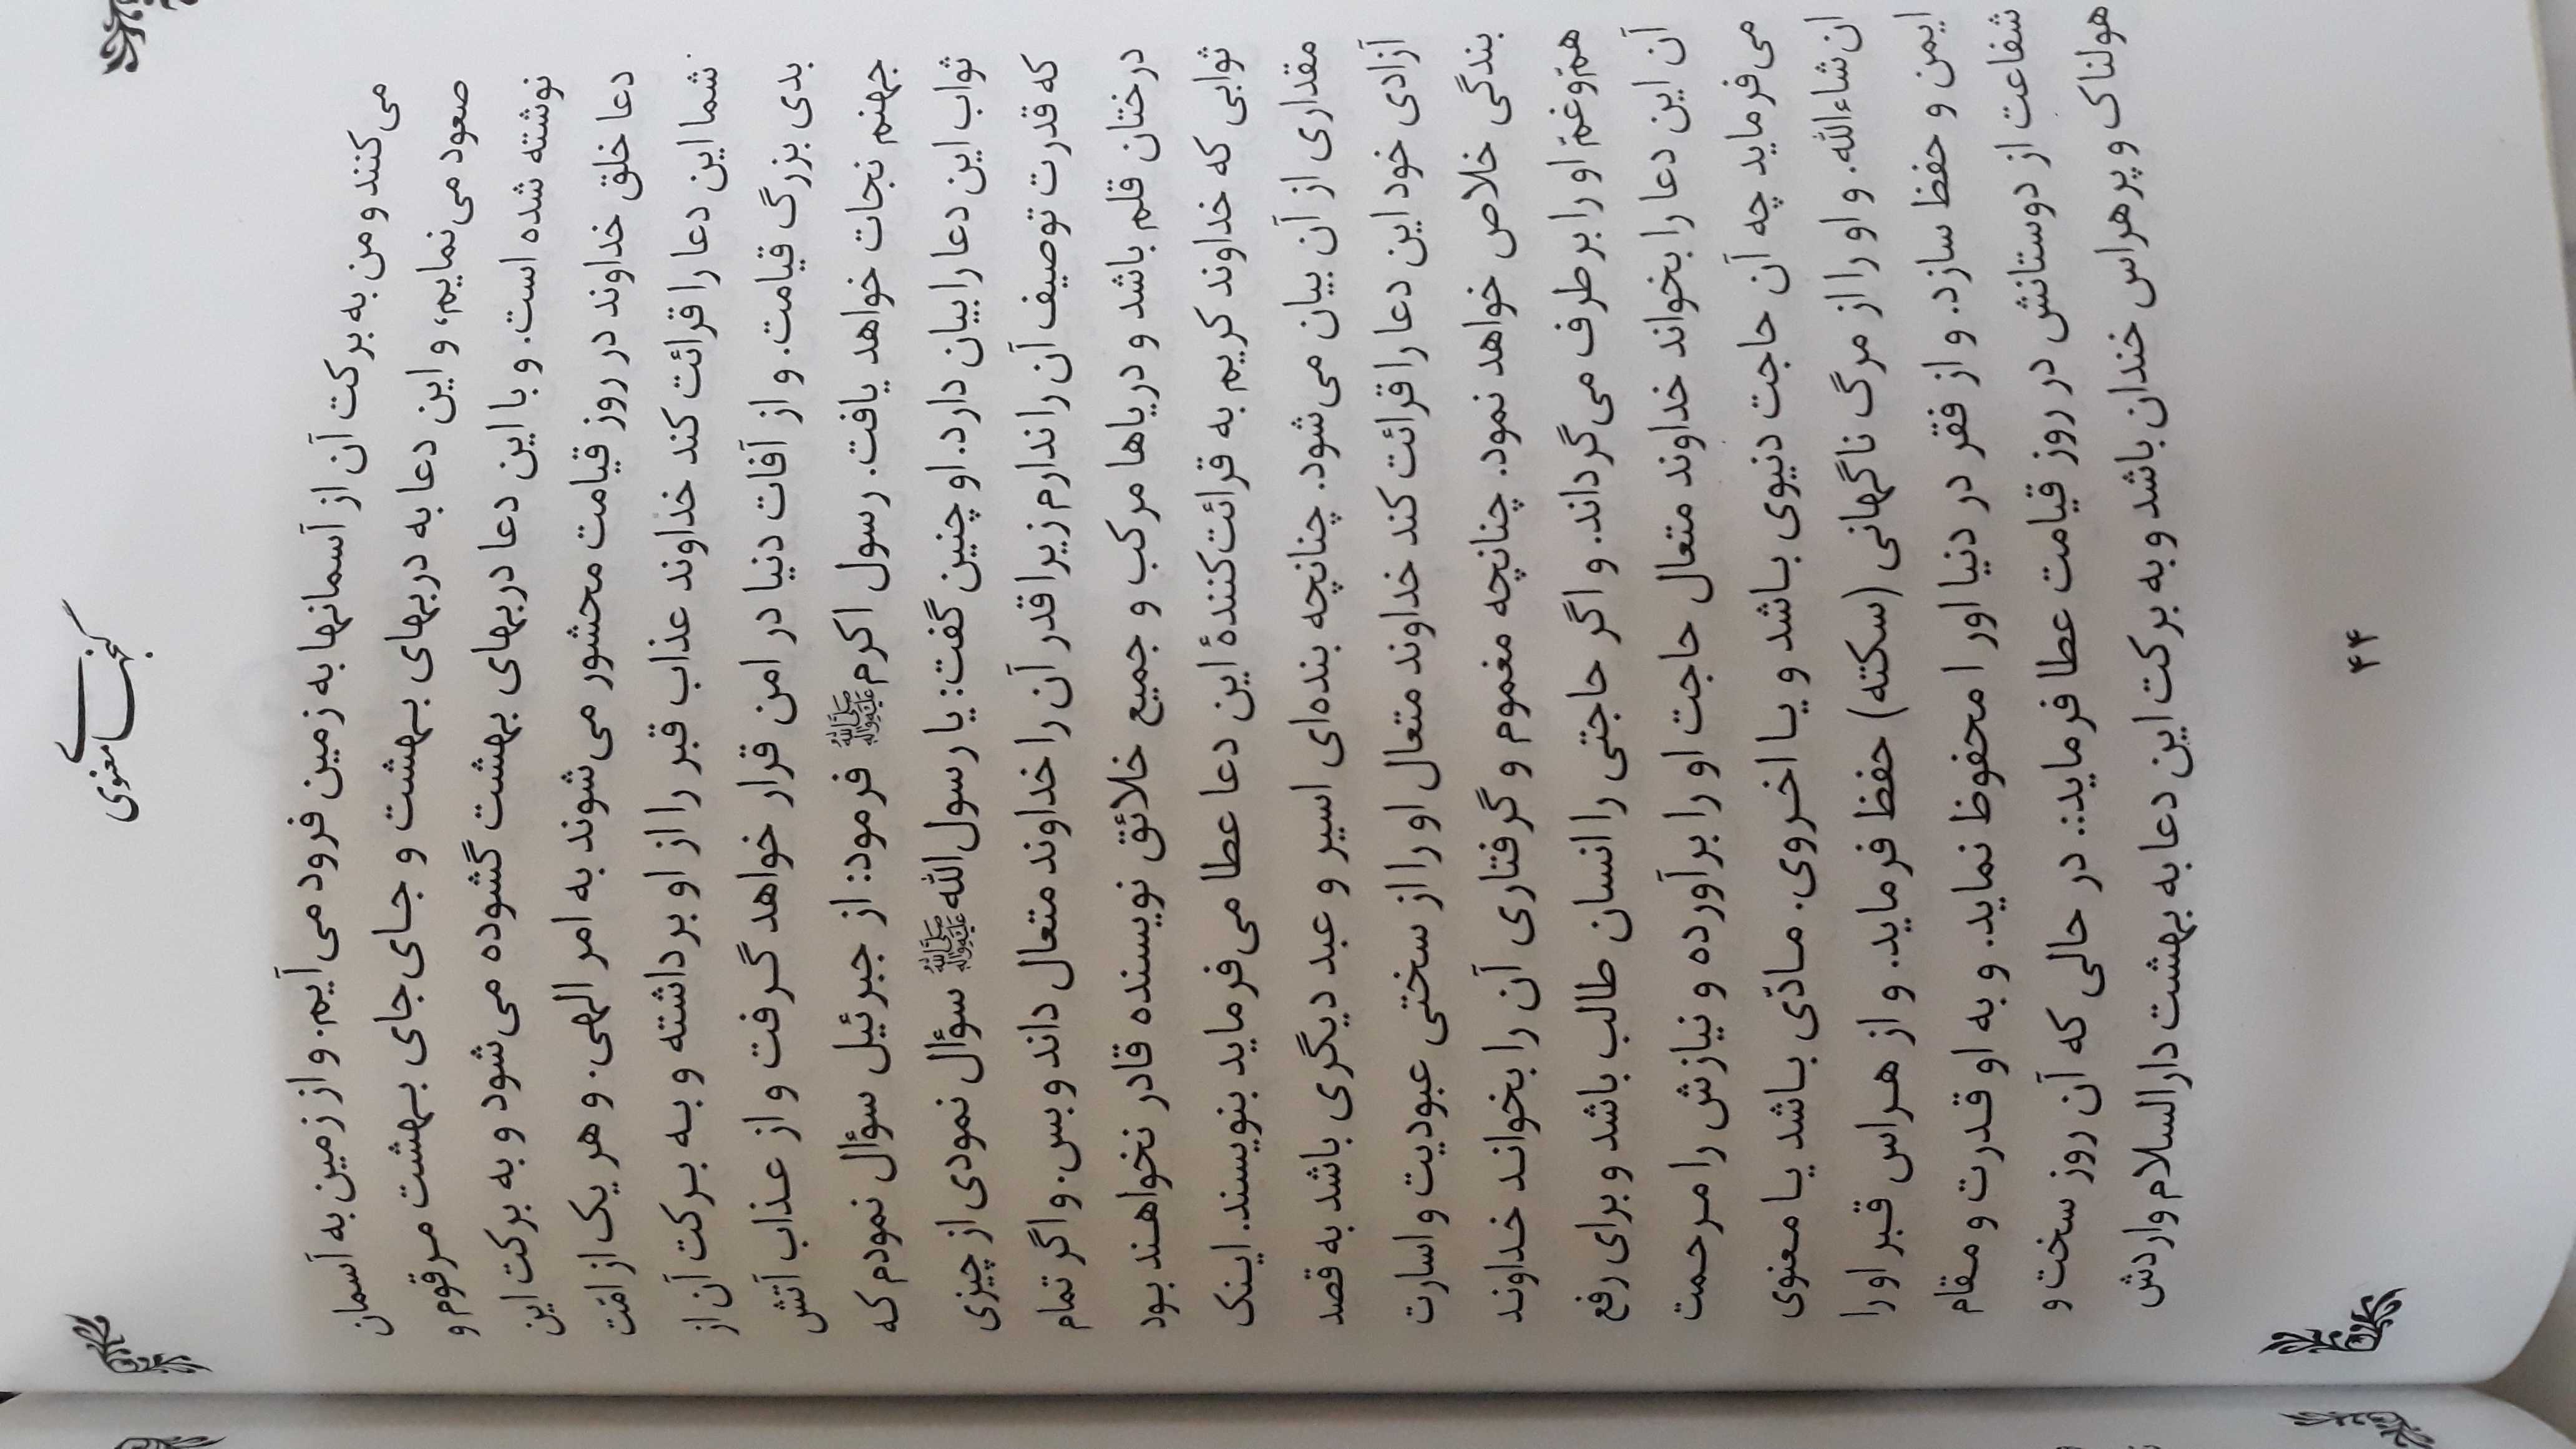 گنجهای معنوی
می‌کنند و من به برکت آن از آسمانها به زمین فرود می‌آیم. و از زمین به آسمان
صعود می‌نمایم، و این دعا به دربهای بهشت و جای جای بهشت مرقوم و
نوشته شده است. و با این دعا دربهای بهشت گشوده می‌شود و به برکت این
دعا خلق خداوند در روز قیامت محشور می‌شوند به امر الهی. و هر یک از امّت
شما این دعا را قرائت کند خداوند عذاب قبر را از او برداشته و به برکت آن از
بدی بزرگ قیامت. و از آفات دنیا در امن قرار خواهد گرفت و از عذاب آتش
جهنم نجات خواهد یافت. رسول اکرم ﷺ فرمود: از جبرئیل سؤال نمودم که
ثواب این دعا را بیان دارد. او چنین گفت: یا رسول‌الله ﷺ سؤال نمودی از چیزی
که قدرت توصیف آن را ندارم زیرا قدر آن را خداوند متعال داند و بس. و اگر تمام
درختان قلم باشد و دریاها مرکب و جمیع خلائق نویسنده قادر نخواهند بود
ثوابی که خداوند کریم به قرائت‌کنندهٔ این دعا عطا می‌فرماید بنویسند. اینک
مقداری از آن بیان می‌شود. چنانچه بنده‌ای اسیر و عبد دیگری باشد به قصد
آزادی خود این دعا را قرائت کند خداوند متعال او را از سختی عبودیت و اسارت
بندگی خلاص خواهد نمود. چنانچه مغموم و گرفتاری آن را بخواند خداوند
همّ و غمّ او را برطرف می‌گرداند. و اگر حاجتی را انسان طالب باشد و برای رفع
آن این دعا را بخواند خداوند متعال حاجت او را برآورده و نیازش را مرحمت
می‌فرماید چه آن حاجت دنیوی باشد و یا اخروی. مادّی باشد یا معنوی
ان شاءالله. و او را از مرگ ناگهانی (سکته) حفظ فرماید. و از هراس قبر او را
ایمن و حفظ سازد. و از فقر در دنیا اور ا محفوظ نماید. و به او قدرت و مقام
شفاعت از دوستانش در روز قیامت عطا فرماید... در حالی که آن روز سخت و
هولناک و پر هراس خندان باشد و به برکت این دعا به بهشت دارالسلام واردش
۴۴